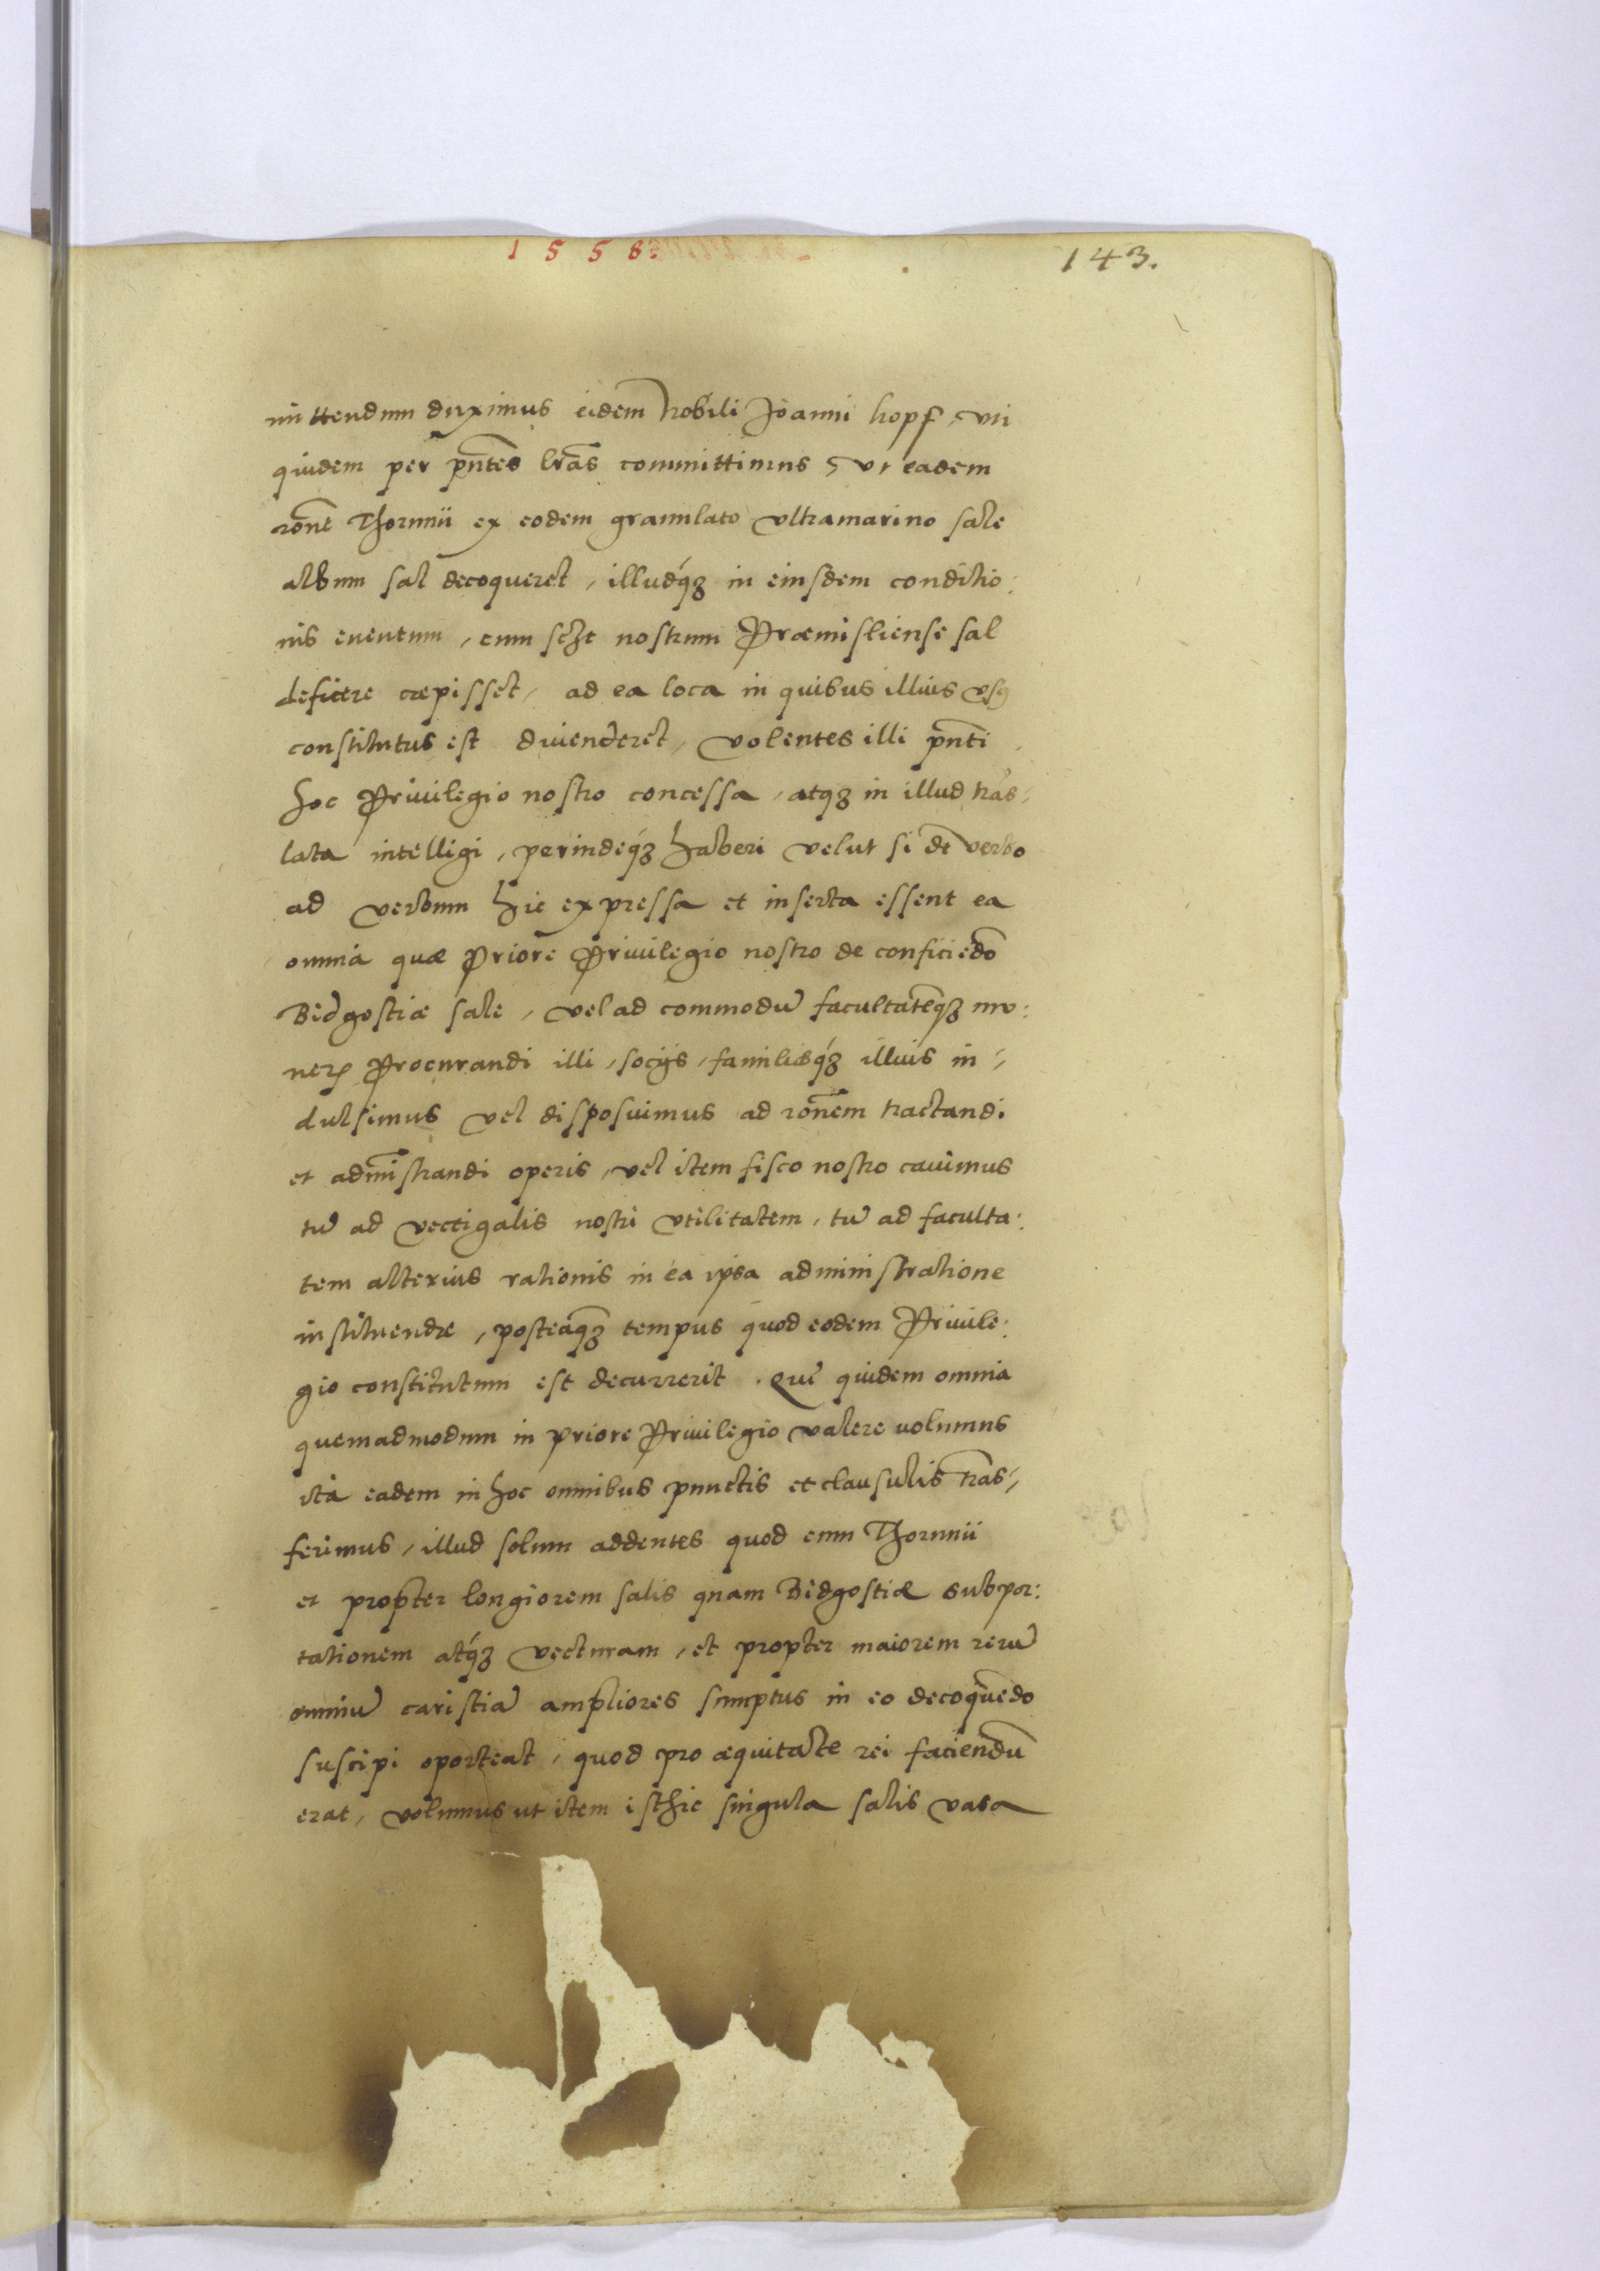 1558.
143.
mittendum duximus eidem nobili Joanni hopf, uti
quidem per pñtes lr̃as committimus, ut eadem
rõne Thorunii ex eodem granulato ultramarino sale
album sal decoqueret, illudq́ꝫ in eiusdem conditio:
nis euentum, cum scꝫt nostrum Præmisliense sal
deficere cœpisset, ad ea loca in quibus illius usꝰ
constitutus est diuenderet, volentes illi pñti
hoc Priuilegio nostro concessa, atqꝫ in illud trãs,
lata intelligi, perindeq́ꝫ haberi velut si de verbo
ad verbum hic expressa et inserta essent ea
omnia quæ Priore Priuilegio nostro de conficiẽdo
Bidgostiæ sale, vel ad commodũ facultatẽqꝫ mu:
neris Procurandi illi, socijs, familiæq́ꝫ illius in,
dulsimus vel disposuimus ad rõnem tractandi
et admĩstrandi operis, vel item fisco nostro cauimus
tũ ad vectigalis nostri utilitatem, tũ ad faculta:
tem alterius rationis in ea ipsa administratione
instituendæ, posteaq̃ꝫ tempus quod eodem Priuile:
gio constitutum est decurrerit. Quę quidem omnia
quemadmodum in priore Priuilegio valere uolumus
ita eadem in hoc omnibus punctis et clausulis trãs,
ferimus, illud solum addentes quod cum Thorunii
et propter longiorem salis quam Bidgostiæ subpor:
tationem atq́ꝫ vecturam, et propter maiorem rerũ
omniũ caristiã ampliores sumptus in eo decoquẽdo
suscipi oporteat, quod pro æquitate rei faciendũ
erat, volumus ut item isthic singula salis vasa